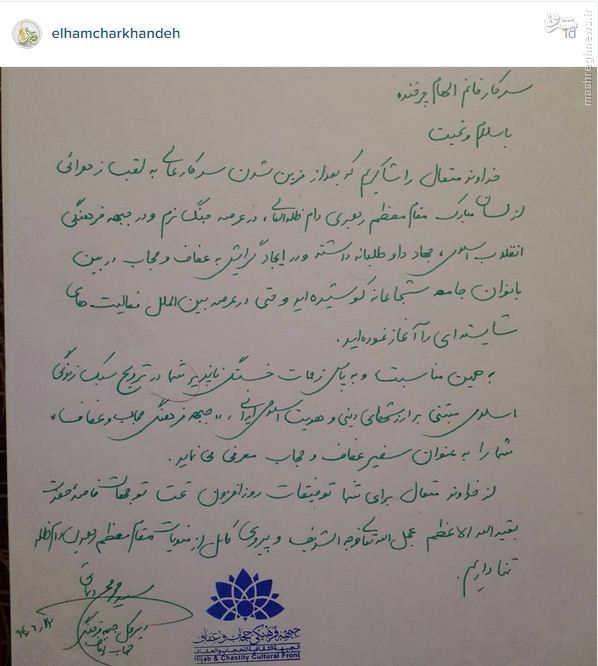 elhamcharkhandeh
1d
mashreghnews.ir
سرکار خانم الهام چرخنده
با سلام و تحیت
خداوند متعال را شاکریم که بعد از مزین شدن سرکار عالی به لقب زهرائی
از لسان مبارک مقام معظم رهبری دام ظله العالی، در عرصه جنگ نرم و در جبهه فرهنگی
انقلاب اسلامی، جهاد داوطلبانه داشته و در ایجاد گرایش به عفاف و حجاب در بین
بانوان جامعه شجاعانه کوشیده اید و حتی در عرصه بین الملل فعالیت های
شایسته ای را آغاز نموده اید.
به همین مناسبت و به پاس زحمات خستگی ناپذیر شما در ترویج سبک زندگی
اسلامی مبتنی بر ارزشهای دینی و هویت اسلامی ایرانی، «جبهه فرهنگی حجاب و عفاف»
شما را به عنوان سفیر عفاف و حجاب معرفی می نماید.
از خداوند متعال برای شما توفیقات روزافزون تحت توجهات خاصه حضرت
بقیه الله الاعظم عجل الله تعالی فرجه الشریف و پیروی کامل از منویات مقام معظم رهبری دام ظله
تمنا داریم.
سید محمد
دبیر کل جبهه فرهنگی
حجاب و عفاف
جبهه فرهنگی حجاب و عفاف
Hijab & Chastity Cultural Front